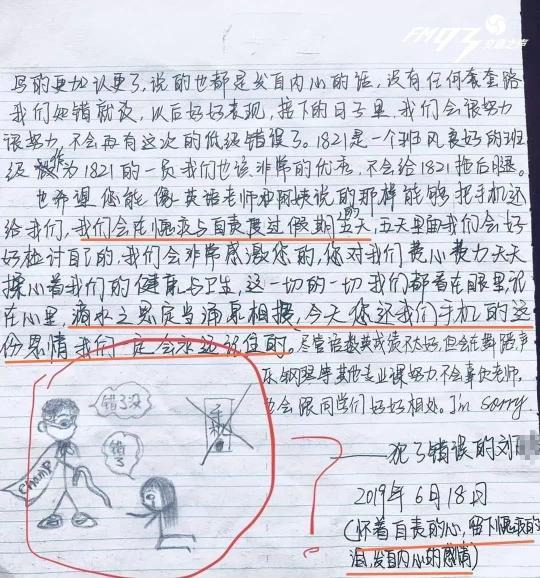 FM93
交通之声
写的更加认真了，说的也都是发自内心的话，没有任何套路
我们知错就改，以后好好表现，接下的日子里，我们会很努力
很努力，不会再有这次的低级错误了。1821是一个班风良好的班
级 作为1821的一员我们也该非常的优秀，不会给1821拖后腿。
也希望您能像英语老师和阿姨说的那样能够把手机还
给我们，我们会在愧疚与自责度过假期的五天，五天里面我们会好
好检讨自己的，我们会非常感激您的，您对我们费心费力天天
操心着我们的健康与卫生，这一切的一切我们都看在眼里，记
在心里，滴水之恩定当涌泉相报，今天你还我们手机的这
份恩情我们一定会永远记住的。尽管语数英成绩不太好，但会在舞蹈声
乐钢琴等其他专业课努力，不会辜负老师，
也会跟同学们好好相处。I'm sorry.
错了没
错了
手机
CHAMP
——犯了错误的刘
2019年6月18日
（怀着自责的心，留下愧疚的
泪，发自内心的感情）